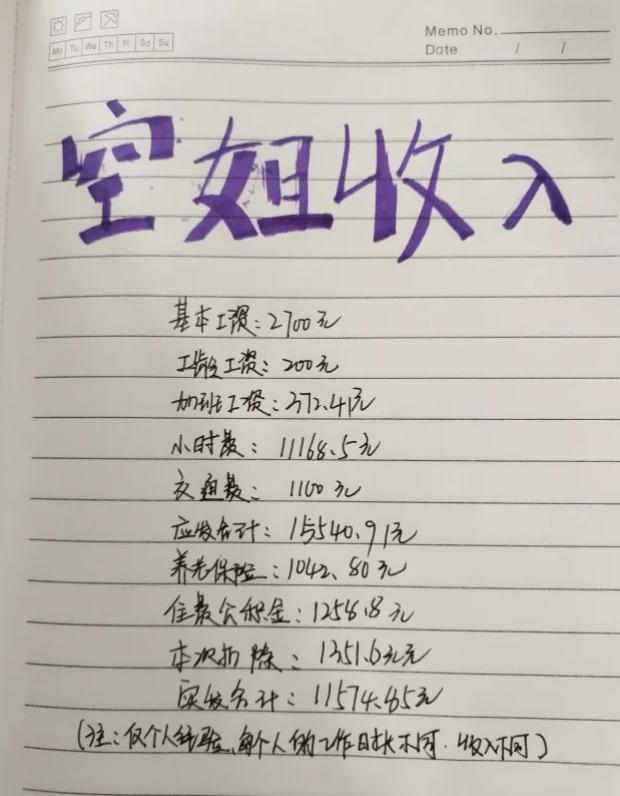 Memo No.
Mo Tu We Th Fr Sa Su
Date / /
空姐收入
基本工资:2700元
工龄工资:200元
加班工资:372.41元
小时费:11168.5元
交通费:1100元
应发合计:15540.91元
养老保险:1042.80元
住费公积金:1258.8元
本次扣除:1351.6元
实发合计:11574.85元
(注:仅个人经验,每个人的工作时长不同.收入不同)